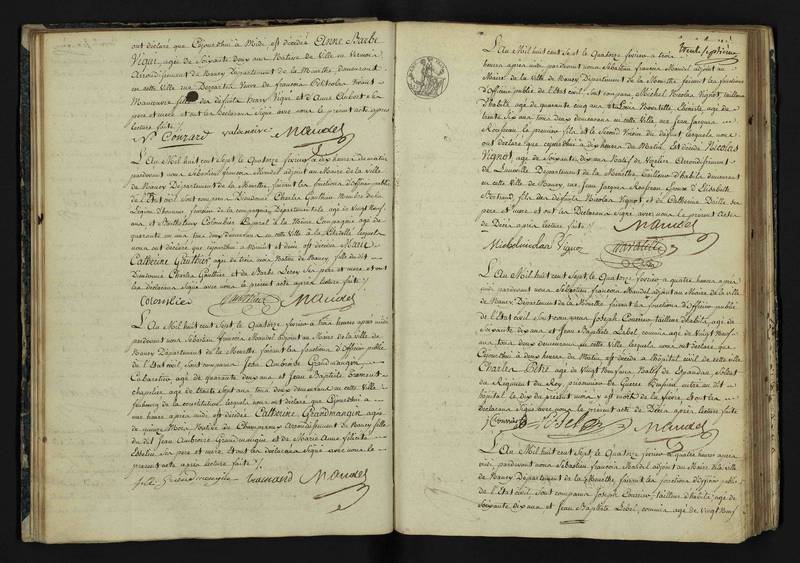 ont déclaré que Cejourd'hui à Midi, est décédée Anne Barbe
Vigué, agée de Soixante douze ans Native de Ville en Vermois
Arrondissement de Nancy Département de la Meurthe, demeurant
en cette Ville rue
Manœuvre fille des défunts Henry Vigué et d'Anne Aubert, les
pere et mere et ont les Déclarans Signé avec nous le présent acte après
lecture faite /.
N. Conrard valentin Mandel
L'An Mil huit cent Sept le Quatorze fevrier a dix heures du matin
pardevant nous Sébastien françois Mandel adjoint au Maire de la ville
de Nancy Département de la Meurthe, faisant les fonctions d'Officier public
de l'État civil sont comparus Dieudonné Charles Gauthier Membre de la
Légion d'honneur, de la compagnie Départementale, agé de Vingt Neuf
ans et Barthelemy Colombier Caporal à la Même Compagnie agé de
quarante un ans tous deux demeurans en cette Ville a la Citadelle lesquels
nous ont déclaré que cejourd'hui a Minuit et demie est décédée Marie
Catherine Gauthier, agée de trois mois Native de Nancy, fille du dit
Dieudonné Charles Gauthier et de Barbe Leroy Ses pere et mere et ont
les déclarans Signé avec nous le présent acte après lecture faite /.
Colombier Gauthier Mandel
L'An Mil huit cent Sept, le Quatorze fevrier a trois heures après midi
pardevant nous Sébastien françois Mandel adjoint au Maire de la ville de
Nancy Département de la Meurthe faisant les fonctions d'Officier public
de l'État civil, Sont comparus Jean Ambroise Grandmangin
Cabaretier agé de quarante deux ans et Jean Baptiste Tramand
chapelier, agé de trente Sept ans tous deux demeurans en cette Ville
faubourg de la constitution, lesquels nous ont déclaré que Cejourd'hui a
une heure après midi est décédée Catherine Grandmangin agée
de quinze Mois Native de Champenoux Arrondissement de Nancy fille
du dit Jean Ambroise Grandmangin et de Marie Anne félicité
Ses pere et mere, et ont les déclarans Signé avec nous le
présent acte après lecture faite /.
Grandmangin tramand Mandel
trente septième
L'An Mil huit cent Sept le Quatorze fevrier a trois
heures après midi pardevant nous Sébastien françois Mandel adjoint au
Maire de la Ville de Nancy Département de la Meurthe, faisant les fonctions
d'Officier public de l'État civil, Sont comparus, Michel Nicolas Vignot, tailleur
d'habits, agé de quarante cinq ans et Louis Navatelle Ebéniste, agé de
trente Six ans tous deux demeurans en cette Ville rue Jean Jacques
Rousseau le premier fils et le Second Voisin du défunt lesquels nous
ont déclaré que cejourd'hui a dix heures du Matin Est décédé Nicolas
Vignot, agé de Soixante dix ans Natif de Arrondissement
de Lunéville Département de la Meurthe, tailleur d'habits demeurant
en cette Ville de Nancy, rue Jean Jacques Rousseau Epoux d'Elisabeth
Bertrand, fils des défunts Nicolas Vignot et de Catherine Ses
pere et mere et ont les Déclarans Signé avec nous le présent Acte
de Décès après lecture faite /. Mandel
Michel nicolas Vignot Navatelle
L'An Mil huit cent Sept, le Quatorze fevrier a quatre heures après
midi pardevant nous Sébastien françois Mandel adjoint au Maire de la ville
de Nancy Département de la Meurthe faisant les fonctions d'Officier public
de l'État civil Sont comparus Joseph Courrier tailleur d'habits, agé de
Soixante dix ans et Jean Baptiste Lebel, commis agé de Vingt Neuf
ans tous deux demeurans en cette Ville, lesquels nous ont déclaré que
Cejourd'hui a deux heures du Matin est décédé à l'hôpital civil de cette ville
Charles Petré agé de Vingt Neuf ans, Natif de Spandau, Soldat
du Régiment du Roy, prisonnier de Guerre Prussien entré au dit
hôpital, le dix du présent mois y est mort de la fievre, et ont les
déclarans Signé avec nous le présent acte de Décès après lecture faite
J Courrier Lebel Mandel
L'An Mil huit cent Sept, le Quatorze fevrier a quatre heures après
midi, pardevant nous Sébastien françois Mandel adjoint au Maire de la ville
de Nancy Département de la Meurthe, faisant les fonctions d'Officier public
de l'État civil, Sont comparus Joseph Courrier tailleur d'habits, agé de
Soixante dix ans et Jean Baptiste Lebel, commis agé de Vingt Neuf